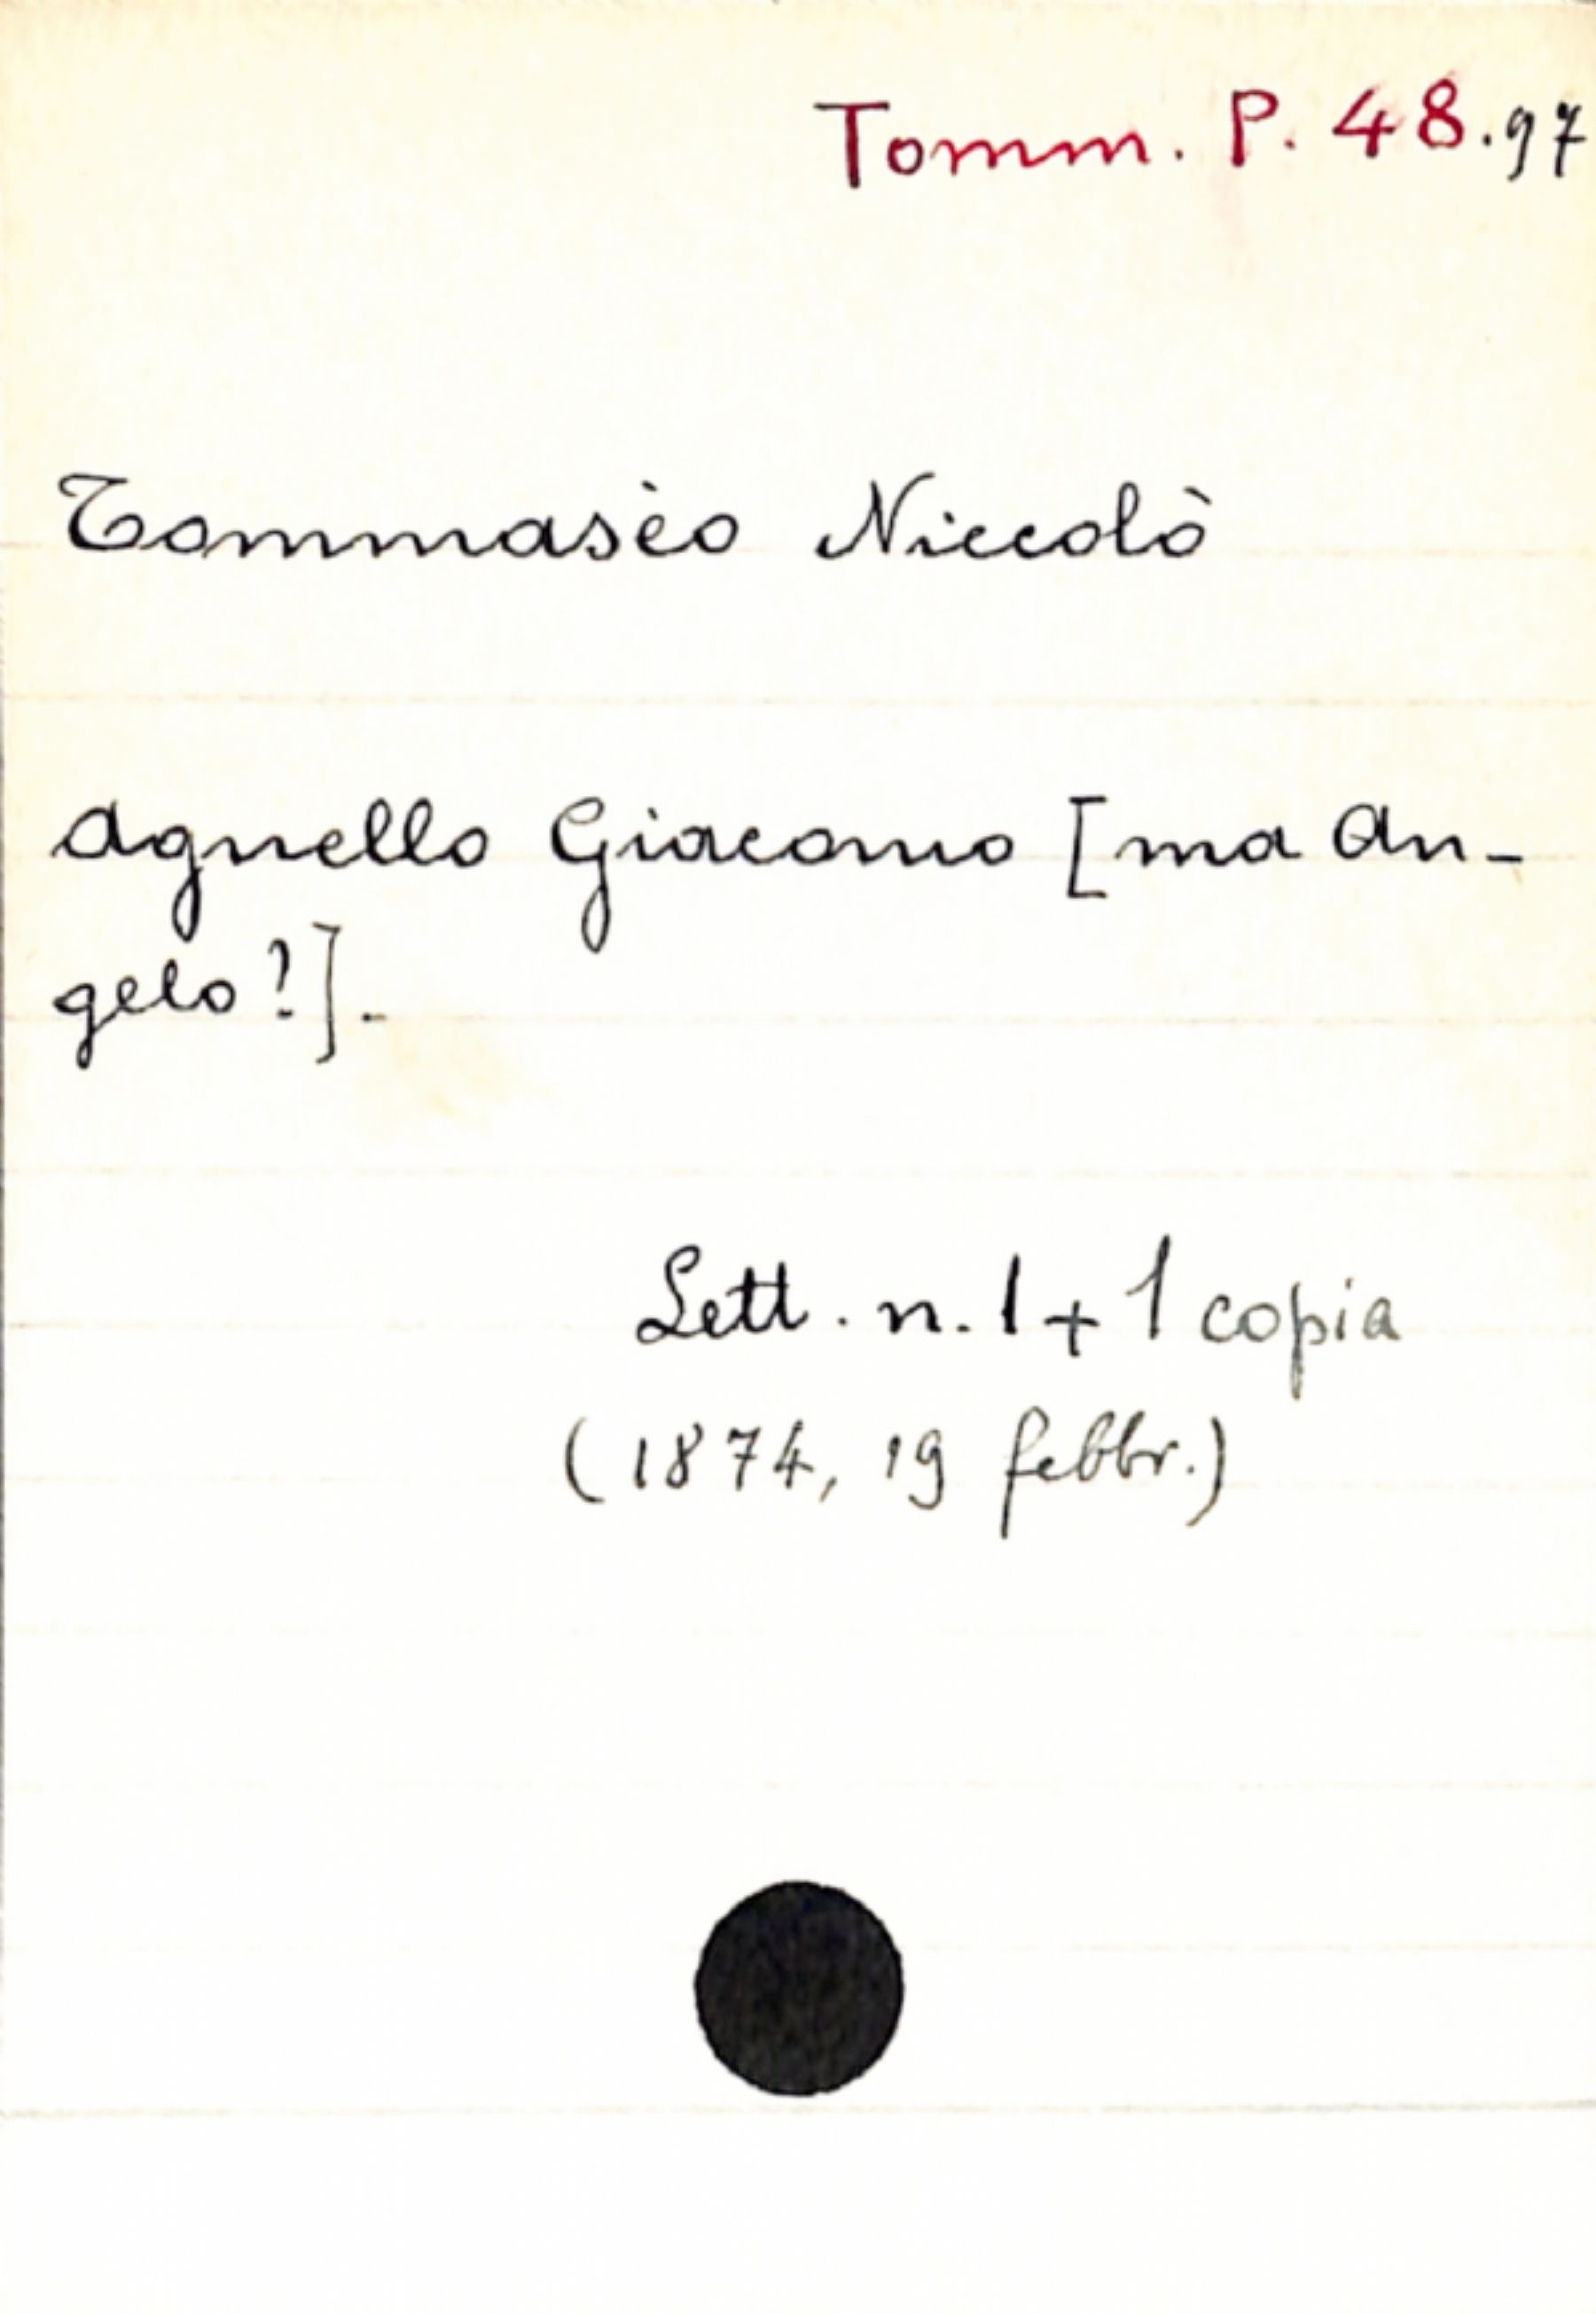 Tomm. P. 48.97
Tommasèo Niccolò
Agnello Giacomo [ma An-
gelo?].
Lett. n. 1 + 1 copia
(1874, 19 febbr.)